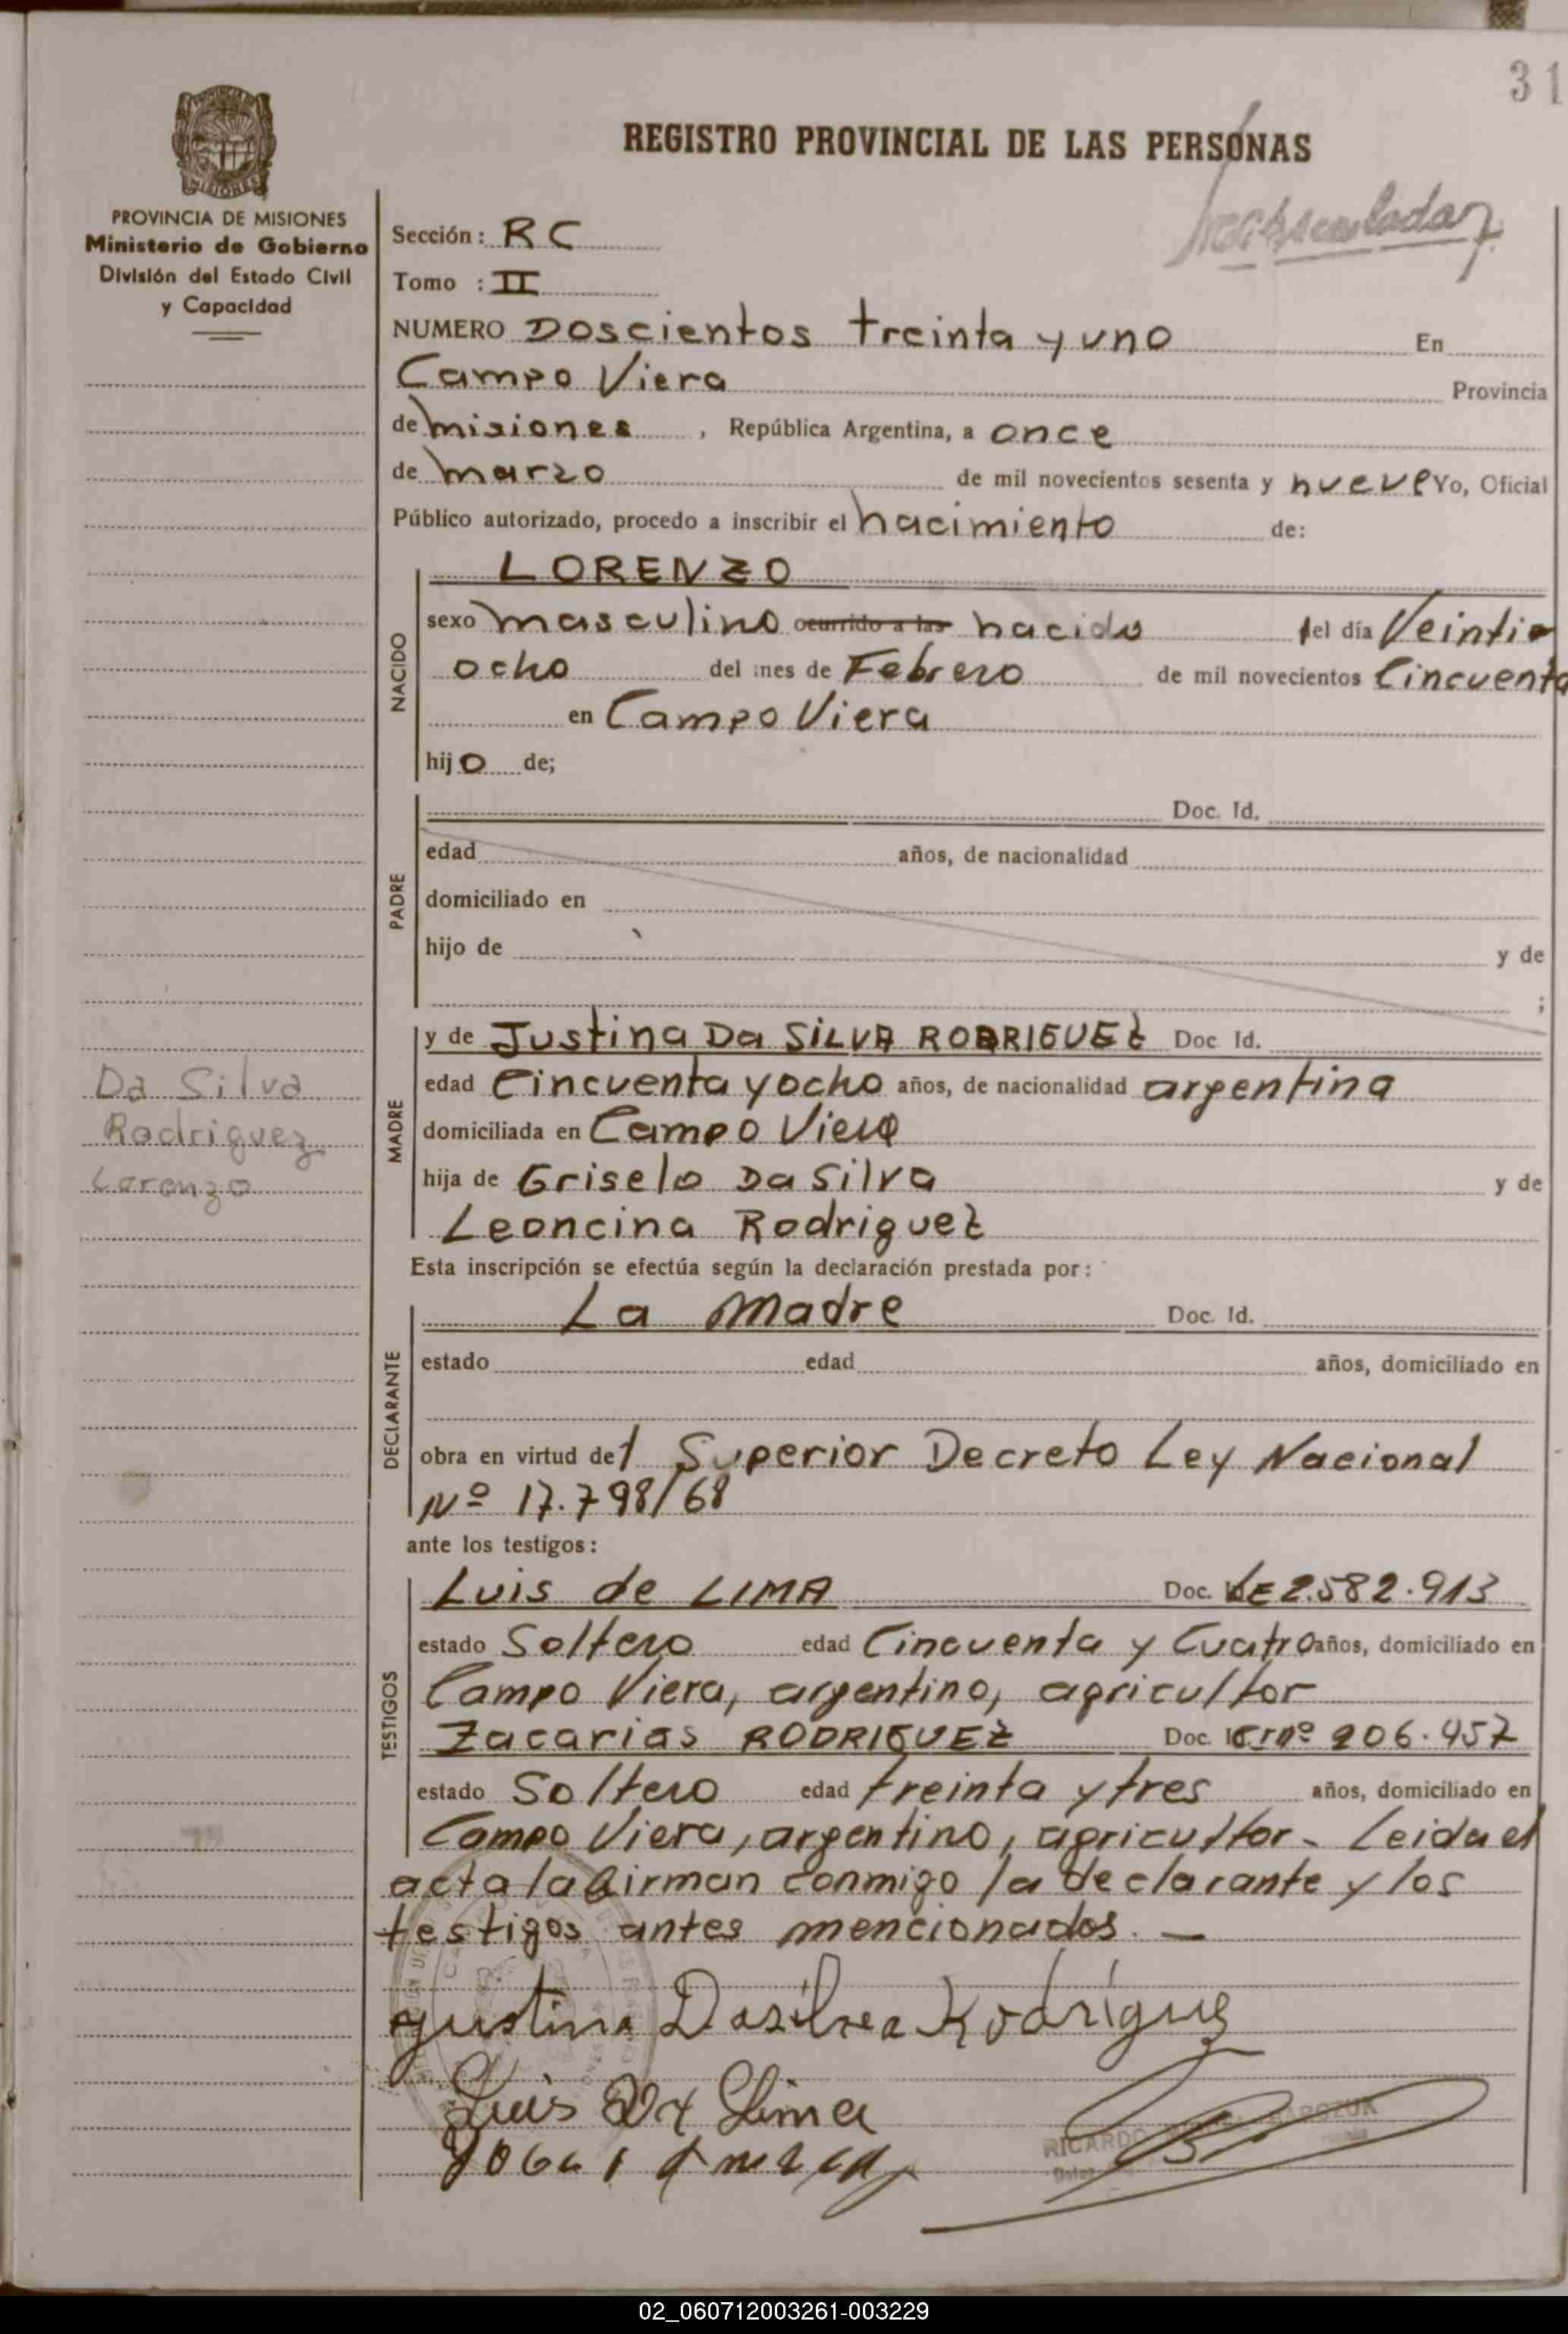 31
REGISTRO PROVINCIAL DE LAS PERSONAS
MISIONES
PROVINCIA DE MISIONES
Ministerio de Gobierno
División del Estado Civil
y Capacidad
Sección: RC
Tomo : II
NUMERO Doscientos treinta y uno En
Campo Viera Provincia
de misiones, República Argentina, a once
de marzo de mil novecientos sesenta y nueve Yo, Oficial
Público autorizado, procedo a inscribir el nacimiento de:
NACIDO
LORENZO
sexo masculino ocurrido a las nacido del día Veintio
ocho del mes de Febrero de mil novecientos Cincuenta
en Campo Viera
hijo de;
PADRE
Doc. Id.
edad años, de nacionalidad
domiciliado en
hijo de y de
;
MADRE
y de Justina Da SILVA RODRIGUEZ Doc Id.
edad Cincuenta y ocho años, de nacionalidad argentina
Da Silva
Rodriguez
Lorenzo
domiciliada en Campo Viera
hija de Griselo Da Silva y de
Leoncina Rodriguez
Esta inscripción se efectúa según la declaración prestada por:
DECLARANTE
La madre Doc. Id.
estado edad años, domiciliado en
obra en virtud del Superior Decreto Ley Nacional
Nº 17.798/68
ante los testigos:
TESTIGOS
Luis de LIMA Doc. LE 2.582.913
estado Soltero edad Cincuenta y Cuatro años, domiciliado en
Campo Viera, argentino, agricultor
Zacarias RODRIGUEZ Doc. nº 206.457
estado Soltero edad treinta y tres años, domiciliado en
Campo Viera, argentino, agricultor. Leida el
acta la firman conmigo la declarante y los
testigos antes mencionados. —
Justina Dasilvea Rodriguez
Luis De Lima
RICARDO
02_060712003261-003229